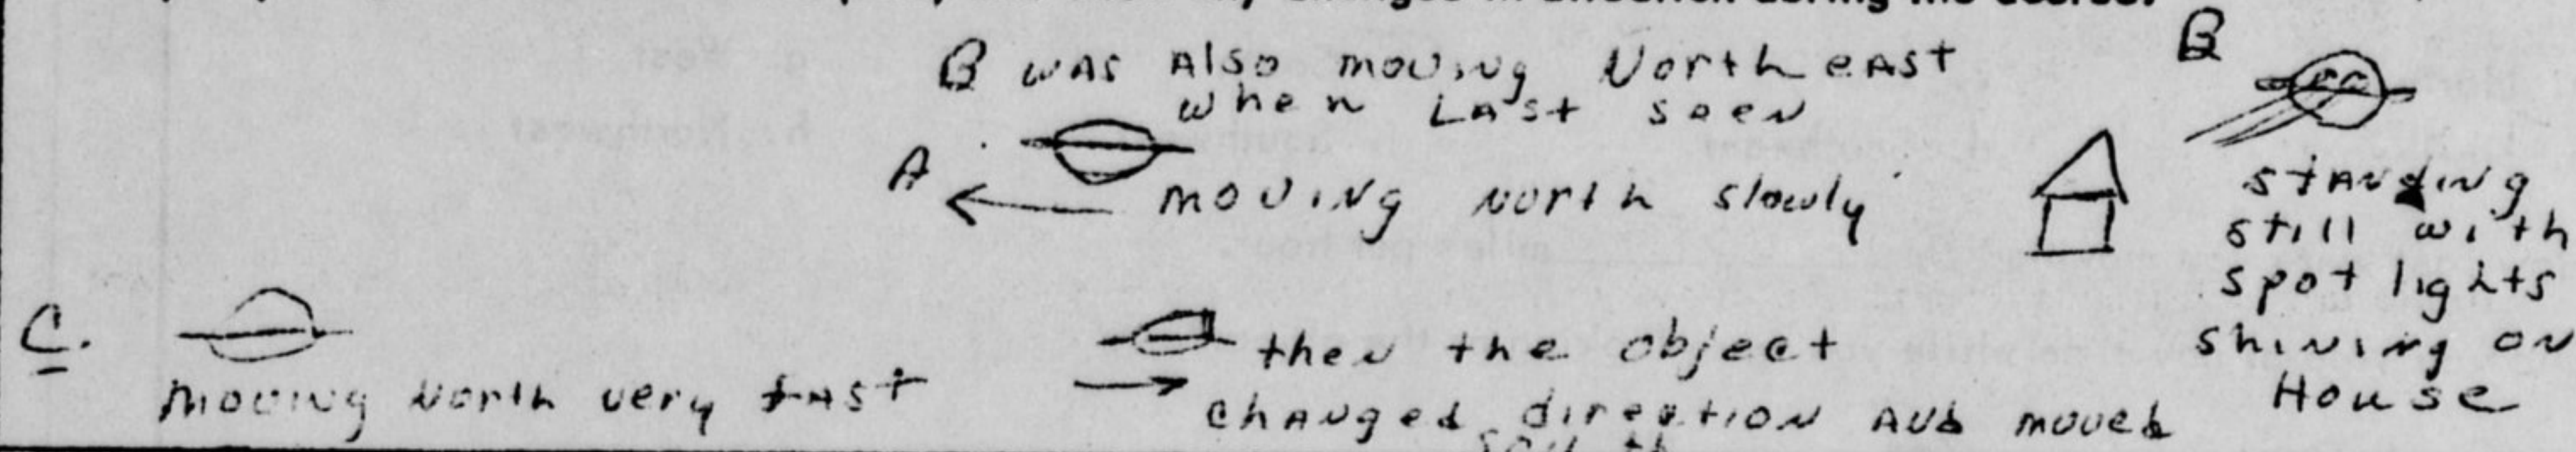 changes in direction during the course.
B was Also moving North east
when Last seen
A
moving north slowly
B
standing
still with
spot lights
shining on
House
C.
moving North very fast
then the object
changed direction And moved
south